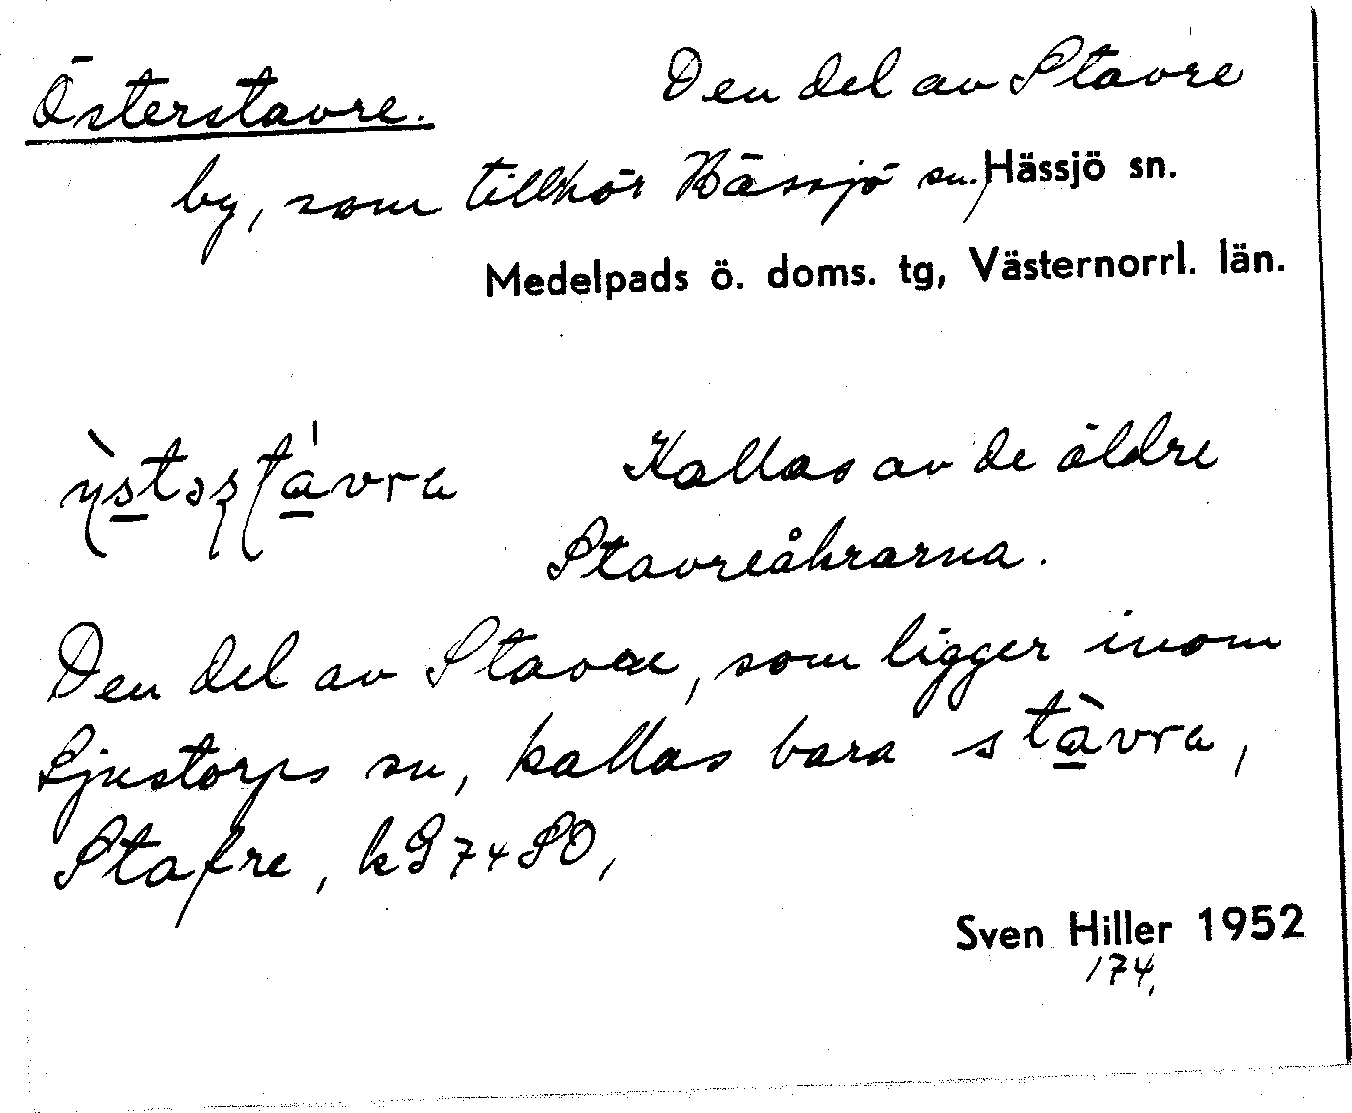 Österstavre. Den del av Stavre
by, som tillhör Hässjö sn. Hässjö sn.
Medelpads ö. doms. tg, Västernorrl. län.
Kallas av de äldre
Stavreåkrarna.
Den del av Stavre, som ligger inom
Ljustorps sn, kallas bara stàvra,
Stafre, k 74 SO,
Sven Hiller 1952
174,